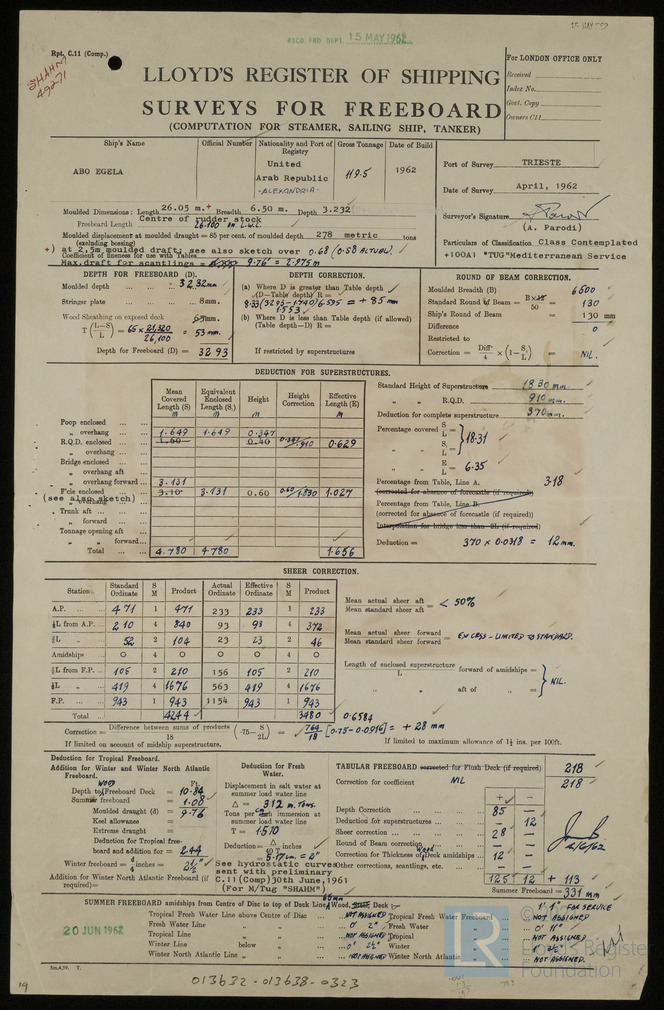 15 MAY 1962
RECD. FRD DEPT. 15 MAY 1962
Rpt. C.11 (Comp.)
SHAHM
49271
LLOYD'S REGISTER OF SHIPPING
SURVEYS FOR FREEBOARD
(COMPUTATION FOR STEAMER, SAILING SHIP, TANKER)
For LONDON OFFICE ONLY
Received
Index No.
Govt. Copy
Owners C11
Ship's Name Official Number Nationality and Port of Registry Gross Tonnage Date of Build
ABO EGELA United Arab Republic -ALEXANDRIA- 119.5 1962
Port of Survey TRIESTE
Date of Survey April, 1962
Surveyor's Signature
(A. Parodi)
Particulars of Classification Class Contemplated
+100A1 "TUG" Mediterranean Service
Moulded Dimensions: Length 26.05 m.+ Breadth 6.50 m. Depth 3.232
Centre of rudder stock
Freeboard Length 26.100 on L.W.L.
Moulded displacement at moulded draught = 85 per cent. of moulded depth 278 metric tons
(excluding bossing)
+) at 2,5m moulded draft; see also sketch over 0.68 (0.58 ACTUAL)
Coefficient of fineness for use with Tables
Max.draft for scantlings = 9.76' = 2.975 m
DEPTH FOR FREEBOARD (D).
Moulded depth 32.32 mm.
Stringer plate 8 mm.
Wood Sheathing on exposed deck 65 mm.
T (L-S/L) = 65 x 21,320/26,100 = 53 mm.
Depth for Freeboard (D) = 32 93
DEPTH CORRECTION.
(a) Where D is greater than Table depth
(D-Table depth) R =
8.33 (3293-1740)6.575 = + 85 mm
1553
(b) Where D is less than Table depth (if allowed)
(Table depth-D) R =
If restricted by superstructures
ROUND OF BEAM CORRECTION.
Moulded Breadth (B) 6500
Standard Round of Beam = B×12/50 = 130
Ship's Round of Beam = 130 mm
Difference 0
Restricted to
Correction = Diff/4 × (1-S/L) = NIL.
DEDUCTION FOR SUPERSTRUCTURES.
Mean Covered Length (S) m Equivalent Enclosed Length (S1) m Height m Height Correction Effective Length (E) m
Poop enclosed
" overhang 1.649 1.649 0.347
R.Q.D. enclosed 1.60 0.40 0.347/.910 0.629
" overhang
Bridge enclosed
" overhang aft
" overhang forward 3.131
F'cle enclosed 3.10 3.131 0.60 0.60/1.830 1.027
(see also sketch)
Trunk aft
" forward
Tonnage opening aft
" " forward
Total 4.780 4.780 1.656
Standard Height of Superstructure 1830 mm.
" " R.Q.D. 910 mm.
Deduction for complete superstructure 370 mm.
Percentage covered S/L =
" " S1/L = } 18.31
" " E/L = 6.35
Percentage from Table, Line A. 3.18
(corrected for absence of forecastle (if required)
Percentage from Table, Line B.
(corrected for absence of forecastle (if required))
Interpolation for bridge less than ·2L (if required)
Deduction = 370 x 0.0318 = 12 mm.
SHEER CORRECTION.
Station Standard Ordinate S M Product Actual Ordinate Effective Ordinate S M Product
A.P. 471 1 471 233 233 1 233
⅙L from A.P. 210 4 840 93 93 4 372
⅓L " 52 2 104 23 23 2 46
Amidships 0 4 0 0 0 4 0
⅓L from F.P. 105 2 210 156 105 2 210
⅙L " 419 4 1676 563 419 4 1676
F.P. 943 1 943 1154 943 1 943
Total 4244 3480 0.6584
Mean actual sheer aft
Mean standard sheer aft = < 50%
Mean actual sheer forward
Mean standard sheer forward = EXCESS - LIMITED TO STANDARD.
Length of enclosed superstructure forward of amidships =
L
" " aft of " = } NIL.
Correction = Difference between sums of products/18 (·75-S/2L) = 764/18 [0.75-0.0916] = + 28 mm
If limited on account of midship superstructure.
If limited to maximum allowance of 1½ ins. per 100ft.
Deduction for Tropical Freeboard.
Addition for Winter and Winter North Atlantic Freeboard.
WOOD Ft.
Depth to Freeboard Deck = 10.84
Summer freeboard = 1.08
Moulded draught (d) = 9.76
Keel allowance =
Extreme draught =
Deduction for Tropical freeboard and addition for = 2.44
Winter freeboard = d/4 inches = 2½"
Addition for Winter North Atlantic Freeboard (if required) =
Deduction for Fresh Water.
Displacement in salt water at summer load water line
Δ = 312 m. tons.
Tons per cm immersion at summer load water line
T = 1.510
Deduction = Δ/40 T inches
= 5.17 cm. = 2"
See hydrostatic curves
sent with preliminary
C.11(Comp)30th June,1961
(For M/Tug "SHAHM")
TABULAR FREEBOARD corrected for Flush Deck (if required) 218
Correction for coefficient NIL 218
+ -
Depth Correction 85 -
Deduction for superstructures - 12
Sheer correction 28 -
Round of Beam correction - -
Correction for Thickness of Wood Deck amidships 12 -
Other corrections, scantlings, etc.
125 12 + 113
Summer Freeboard = 331 mm
2/6/62
SUMMER FREEBOARD amidships from Centre of Disc to top of Deck Line, Wood, Steel, Deck
65mm
1' 1" FOR SERVICE
Tropical Fresh Water Line above Centre of Disc NOT ASSIGNED Tropical Fresh Water Freeboard NOT ASSIGNED
Fresh Water Line " " 0' 2" Fresh Water " 0' 11"
Tropical Line " " NOT ASSIGNED Tropical " NOT ASSIGNED
Winter Line below " " 0' 2½" Winter " 1' 3½"
Winter North Atlantic Line " " NOT ASSIGNED Winter North Atlantic " NOT ASSIGNED.
20 JUN 1962
5m,4,59. T.
LR
© Lloyd's Register
Foundation
19
013632-013638-0323